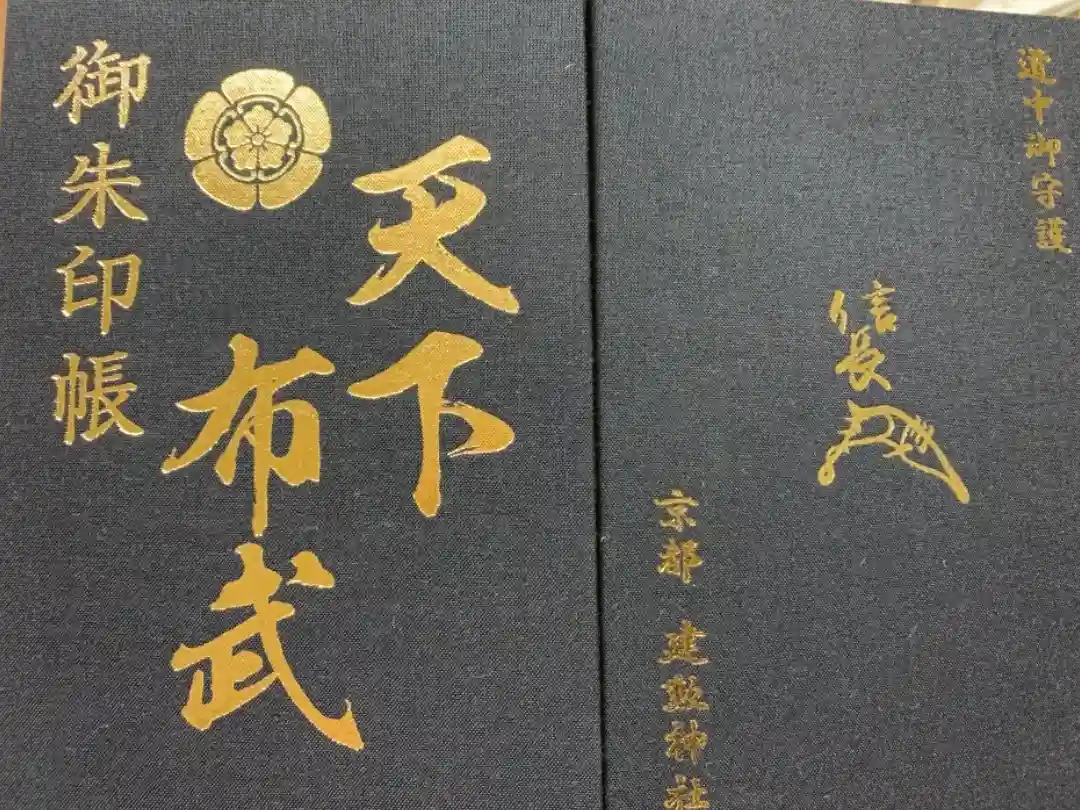 御朱印帳
天下
布武
道中御守護
信長
京都 建勲神社